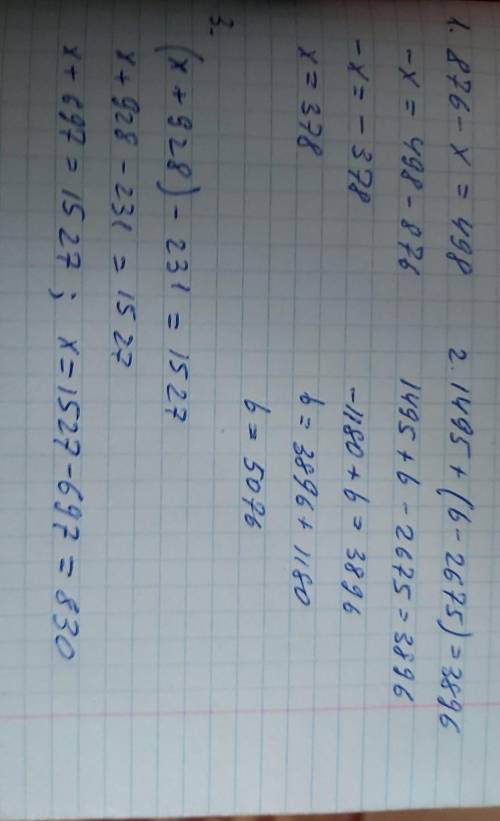 1. 876 - x = 498
-x = 498 - 876
-x = - 378
x = 378
2. 1495 + (b - 2675) = 3896
1495 + b - 2675 = 3896
-1180 + b = 3896
b = 3896 + 1180
b = 5076
3.
(x + 928) - 231 = 1527
x + 928 - 231 = 1527
x + 697 = 1527 ; x = 1527 - 697 = 830